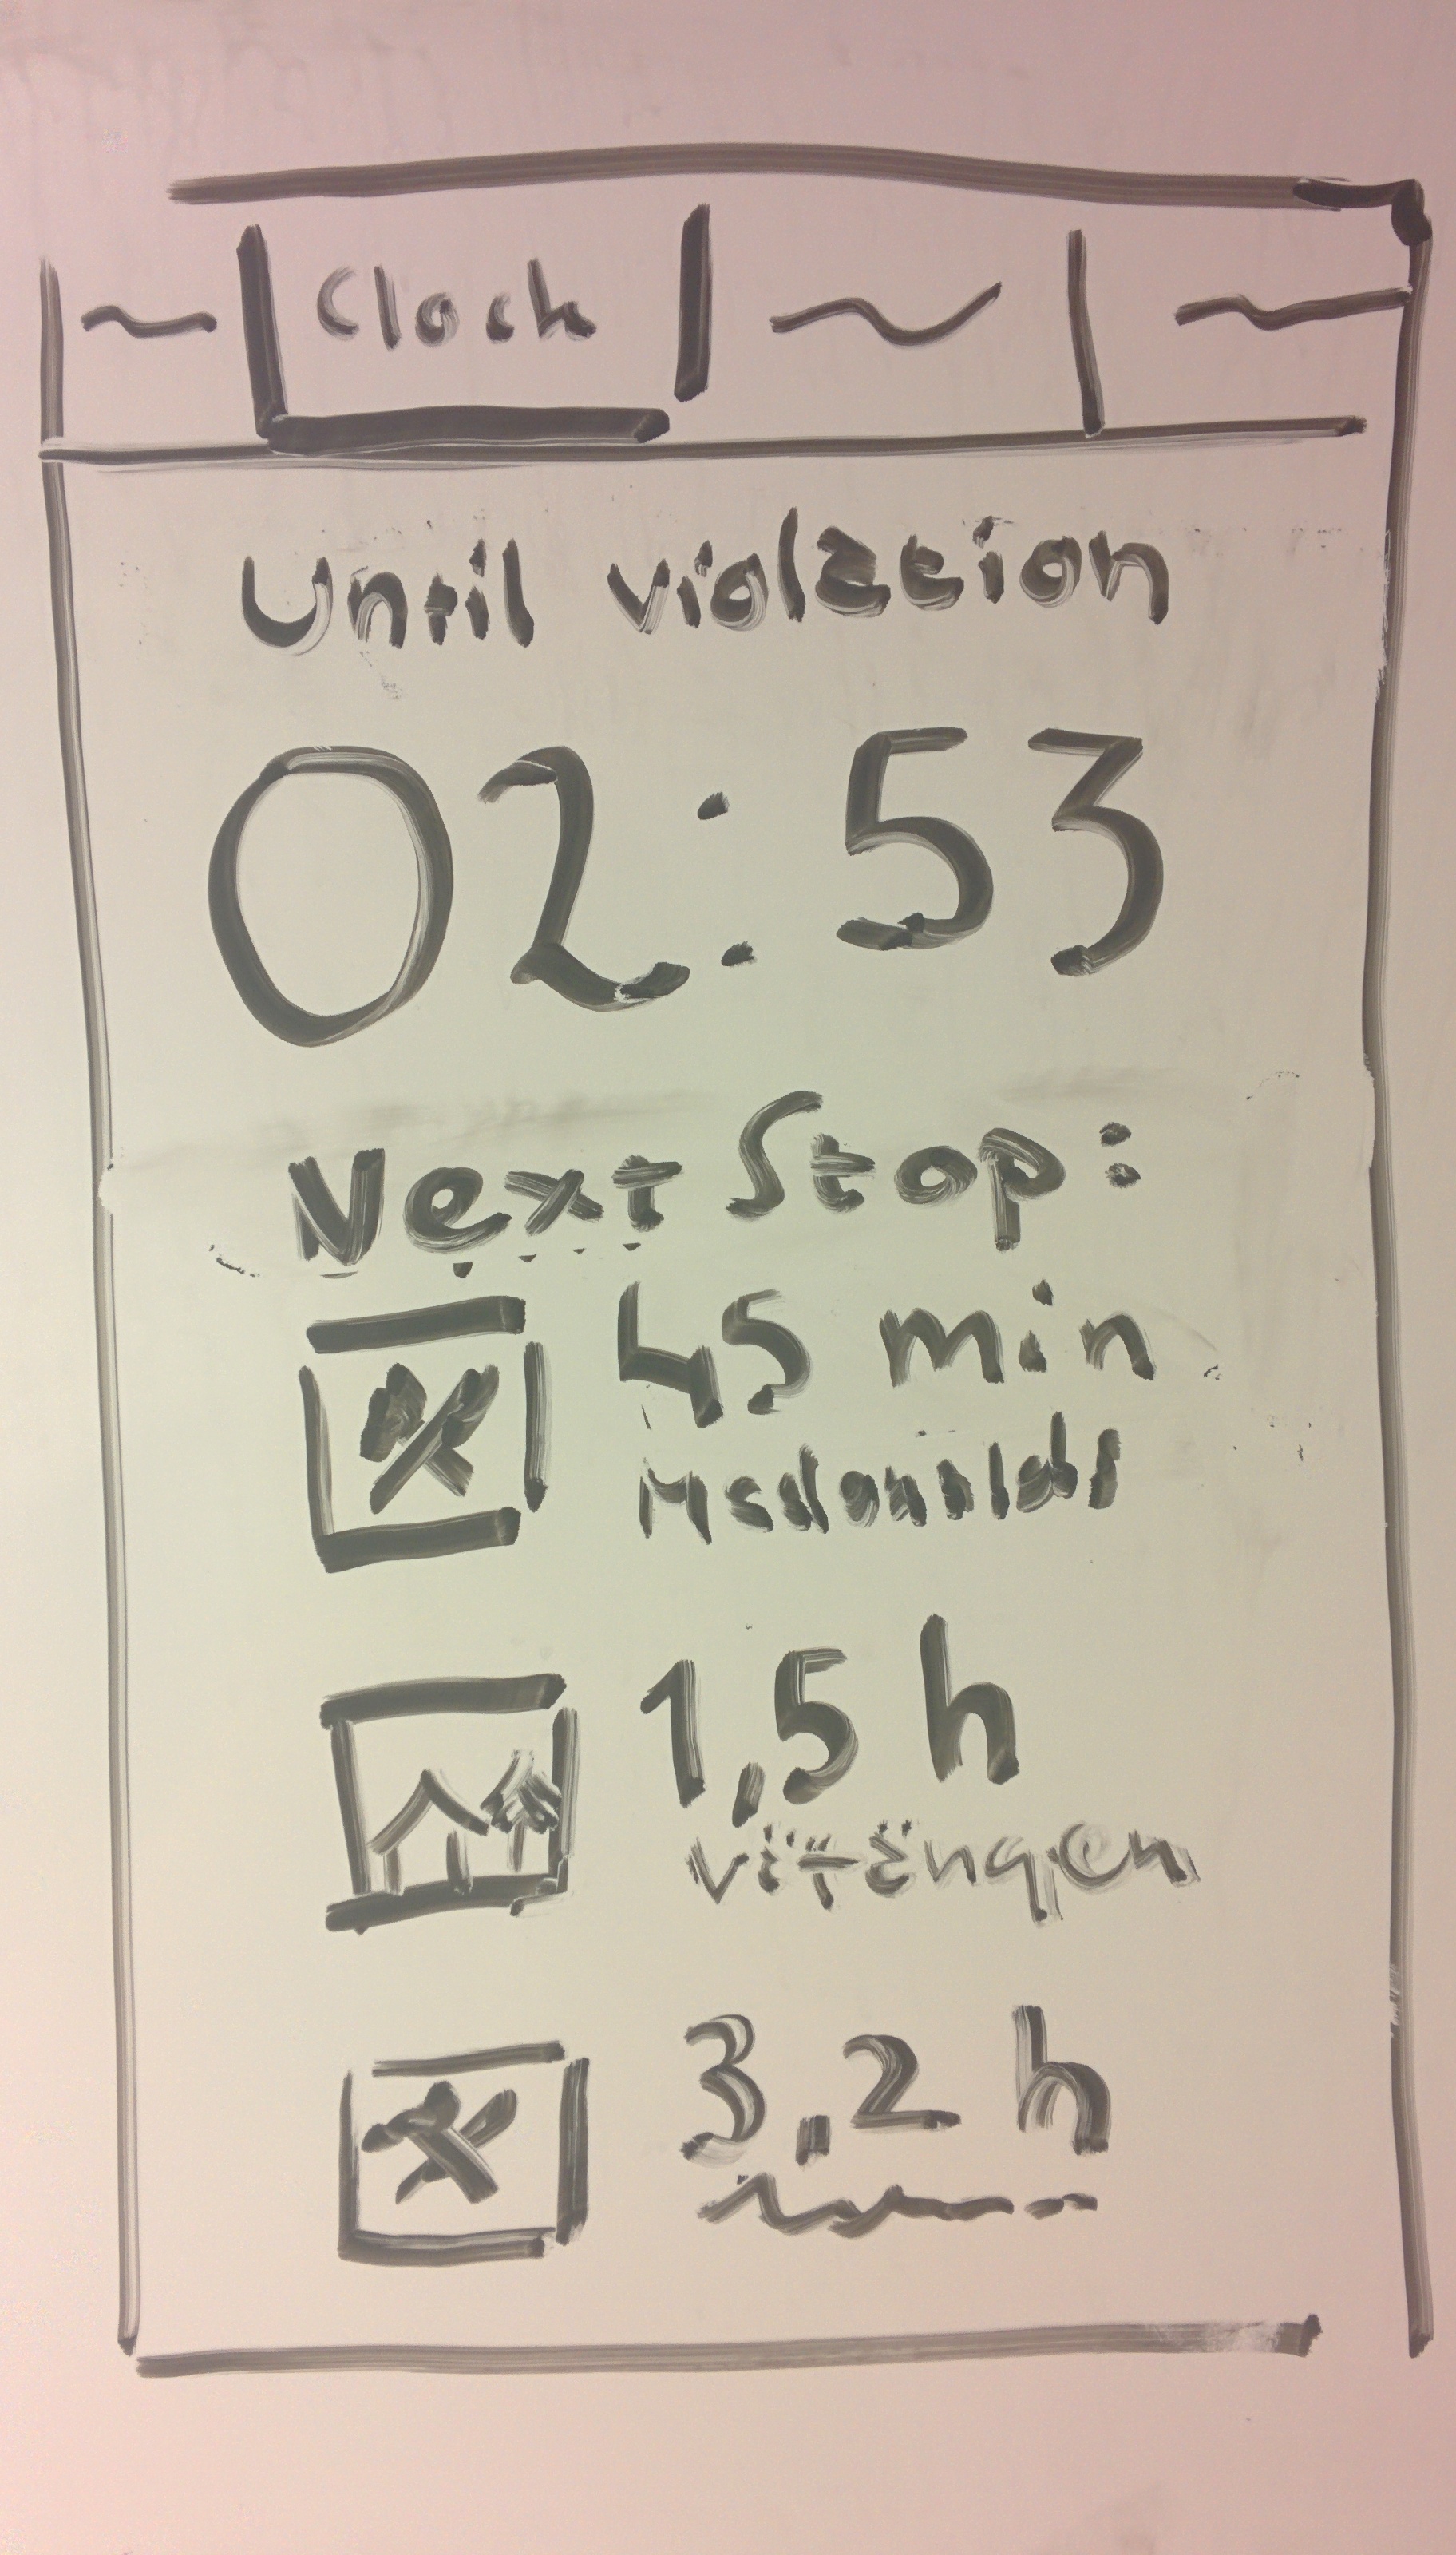 Clock
Until violation
02:53
Next Stop:
45 min
Mcdonalds
1,5 h
3,2 h